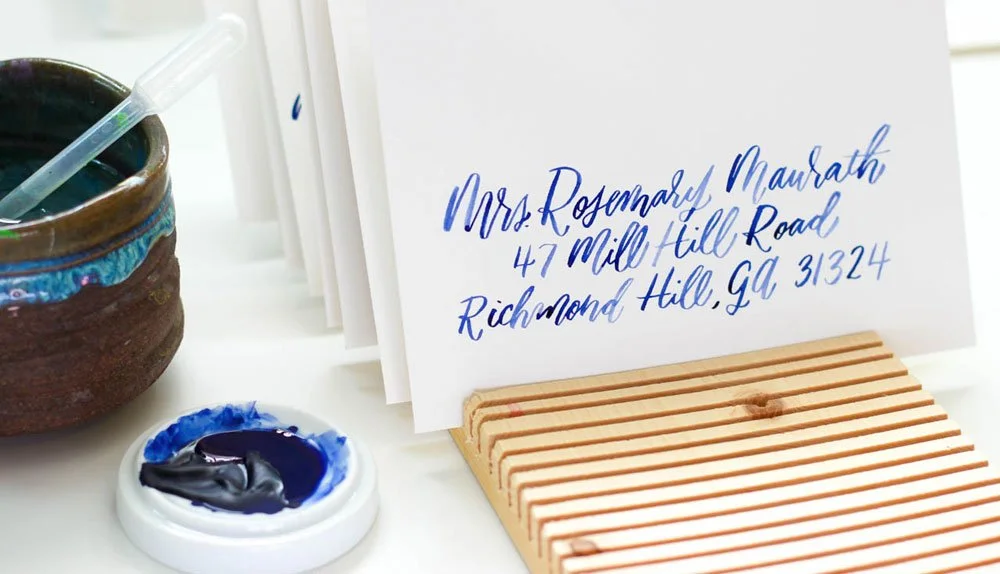 Mrs. Rosemary Maurath
47 Mill Hill Road
Richmond Hill, GA 31324